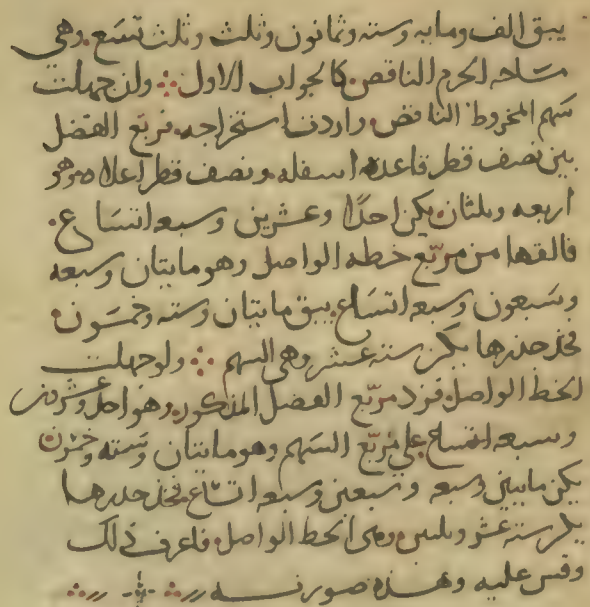 يبق الف ومايه وسته وثمانون وثلث وثلث تسع. وهي
مساحه الجرم الناقص. كالجواب الاول ∴ وان جهلت
سهم المخروط الناقص. واردت استخراجه. فربّع الفضل
بين نصف قطر قاعده اسفله ونصف قطر اعلاه وهو
اربعه وثلثان. يكن احدًا وعشرين وسبعه اتساع.
فالقها من مربّع خطه الواصل وهو مايتان وسبعه
وسبعون وسبعه اتساع يبق مايتان وسته وخمسون.
فخذ جذرها يكن سته عشر وهي السهم ∴ ولو جهلت
الخط الواصل. فزد مربّع الفضل المذكور. وهو احد وعشرين
وسبعه اتساع على مربّع السهم وهو مايتان وسته وخمسون
يكن مايتين وسبعه وسبعين وسبعه اتساع فخذ جذرها
يكن سته عشر وثلثين وهي الخط الواصل. فاعرف ذلك
وقس عليه وهذه صورته ∴ ∴ ∴